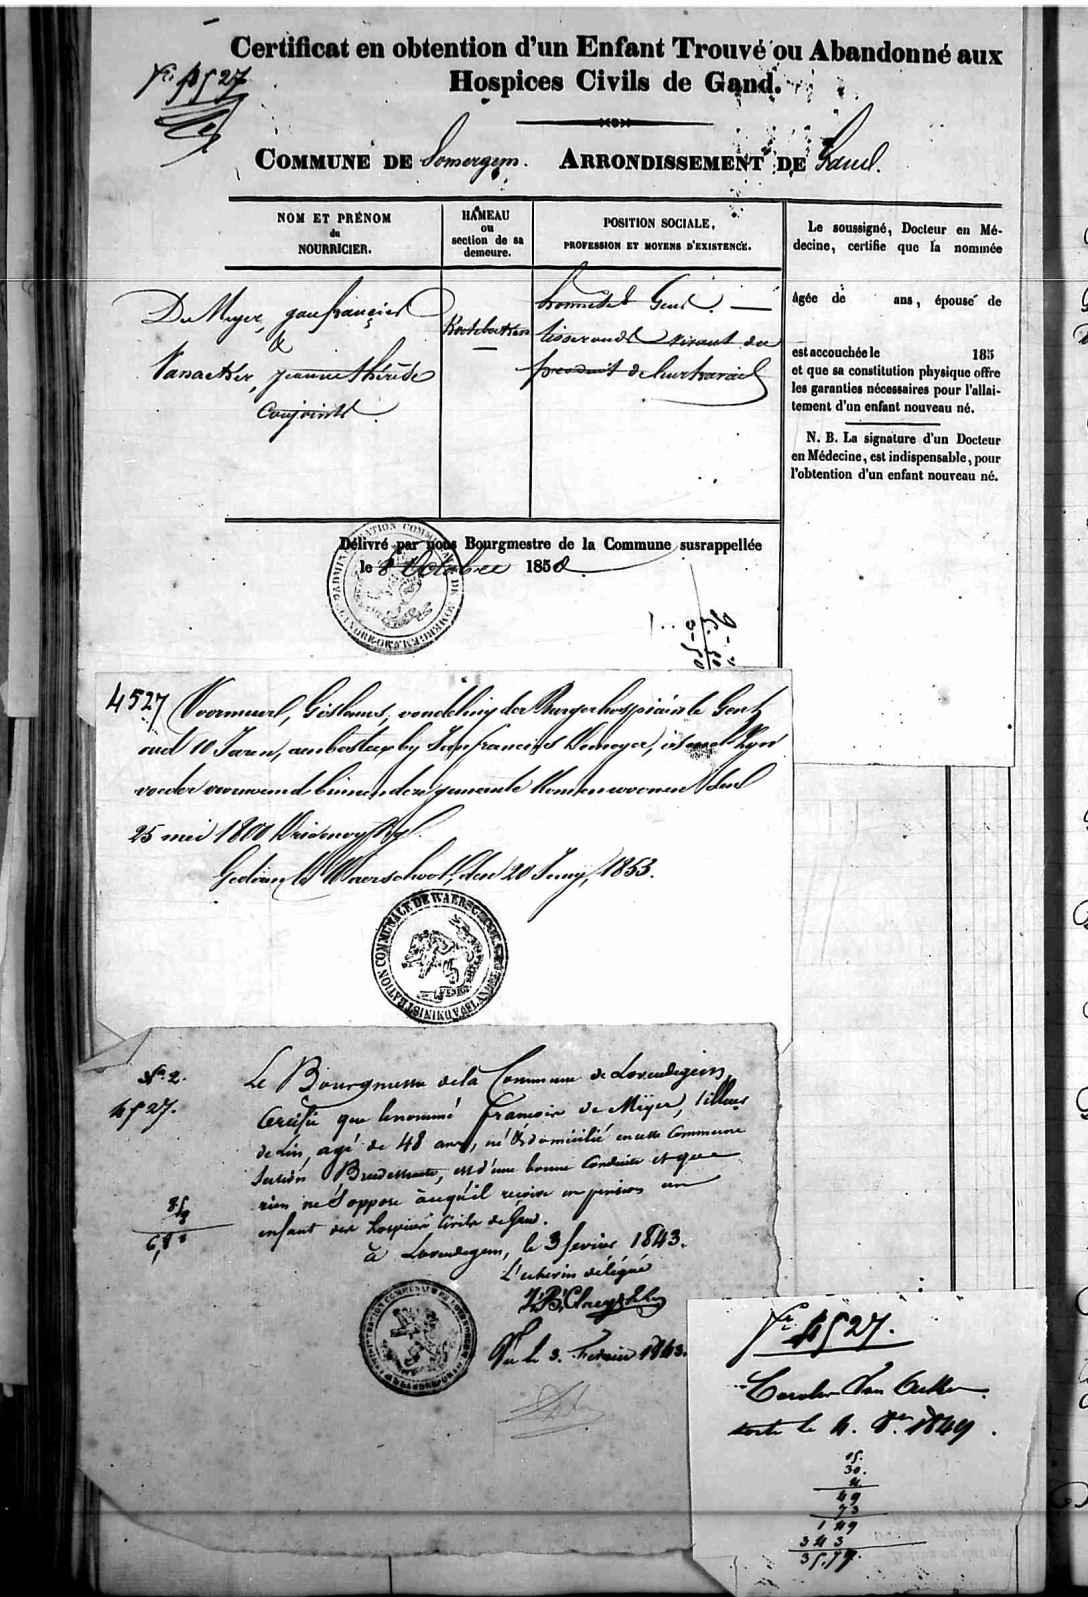 Certificat en obtention d'un Enfant Trouvé ou Abandonné aux
Hospices Civils de Gand.
4527
COMMUNE DE Somergem. ARRONDISSEMENT DE Gand.
NOM ET PRÉNOM
du
NOURRICIER.
HAMEAU
ou
section de sa
demeure.
POSITION SOCIALE,
PROFESSION ET MOYENS D'EXISTENCE.
De Meyer, jean françois
&
Vanacker, jeanne thérèse
Conjoints.
honnêtes Gens.
tisserands vivant du
produit de leur travail
Le soussigné, Docteur en Mé-
decine, certifie que la nommée
âgée de ans, épouse de
est accouchée le 185
et que sa constitution physique offre
les garanties nécessaires pour l'allai-
tement d'un enfant nouveau né.
N. B. La signature d'un Docteur
en Médecine, est indispensable, pour
l'obtention d'un enfant nouveau né.
Délivré par nous Bourgmestre de la Commune susrappellée
le 8 Octobre 185
4527 Gislenus, vondeling der Burger hospicien te Gent
oud 10 Jaren, aenbesteed by Jan francies Demeyer, is met zyn
voeder voornoemd binnen deze gemeente komen woonen den
25 mei
Gedaen te Waerschoot, den 20 Juny, 1853.
ADMINISTRATION COMMUNALE DE WAERSCHOOT
No 2.
4527.
Le Bourgmestre de la Commune de Lovendegem,
Certifie que le nommé francois de Meÿer, tilleur
de Lin, agé de 48 ans, né & domicilié en cette Commune
Section est d'une bonne Conduite et que
rien ne s'oppose à ce qu'il reçoive en pension un
enfant des hospices Civils de Gand.
à Lovendegem, le 3 fevrier 1843.
L'echevin délégué
Vu le 3. Fevrier 1843.
4527.
Van Acker.
sorti le 4. 1849.
30.
49
73
149
343